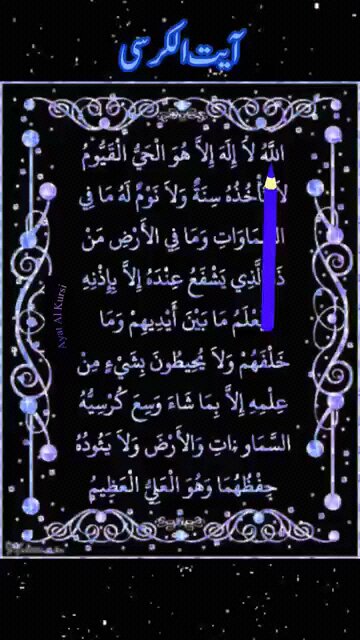 آیت الکرسی
اللَّهُ لاَ إِلَهَ إِلاَّ هُوَ الْحَيُّ الْقَيُّومُ
تَأْخُذُهُ سِنَةٌ وَلاَ نَوْمٌ لَهُ مَا فِي
وَمَا فِي الأَرْضِ مَنْ
الَّذِي يَشْفَعُ عِنْدَهُ إِلاَّ بِإِذْنِهِ
يَعْلَمُ مَا بَيْنَ أَيْدِيهِمْ وَمَا
خَلْفَهُمْ وَلاَ يُحِيطُونَ بِشَيْءٍ مِنْ
عِلْمِهِ إِلاَّ بِمَا شَاءَ وَسِعَ كُرْسِيُّهُ
السَّمَاوَاتِ وَالأَرْضَ وَلاَ يَئُودُهُ
حِفْظُهُمَا وَهُوَ الْعَلِيُّ الْعَظِيمُ
Ayat Al Kursi